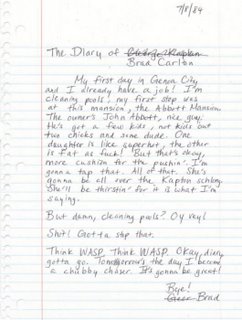 7/8/84
The Diary of George Kaplan
Brad Carlton
My first day in Genoa City
and I already have a job! I'm
cleaning pools, my first stop was
at this mansion, the Abbott Mansion.
The owner's John Abbott, nice guy.
He's got a few kids, not kids but
two chicks and some dude. One
daughter is like superhot, the other
is fat as fuck! But that's okay,
more cushion for the pushin'. I'm
gonna tap that. All of that. She's
gonna be all over the Kaplan schlong.
She'll be thirstin' for it is what I'm
saying.
But damn, cleaning pools? Oy vey!
Shit! Gotta stop that.
Think WASP. Think WASP. Okay, diary,
gotta go. Tomorrow's the day I become
a chubby chaser. It's gonna be great!
Bye!
Brad